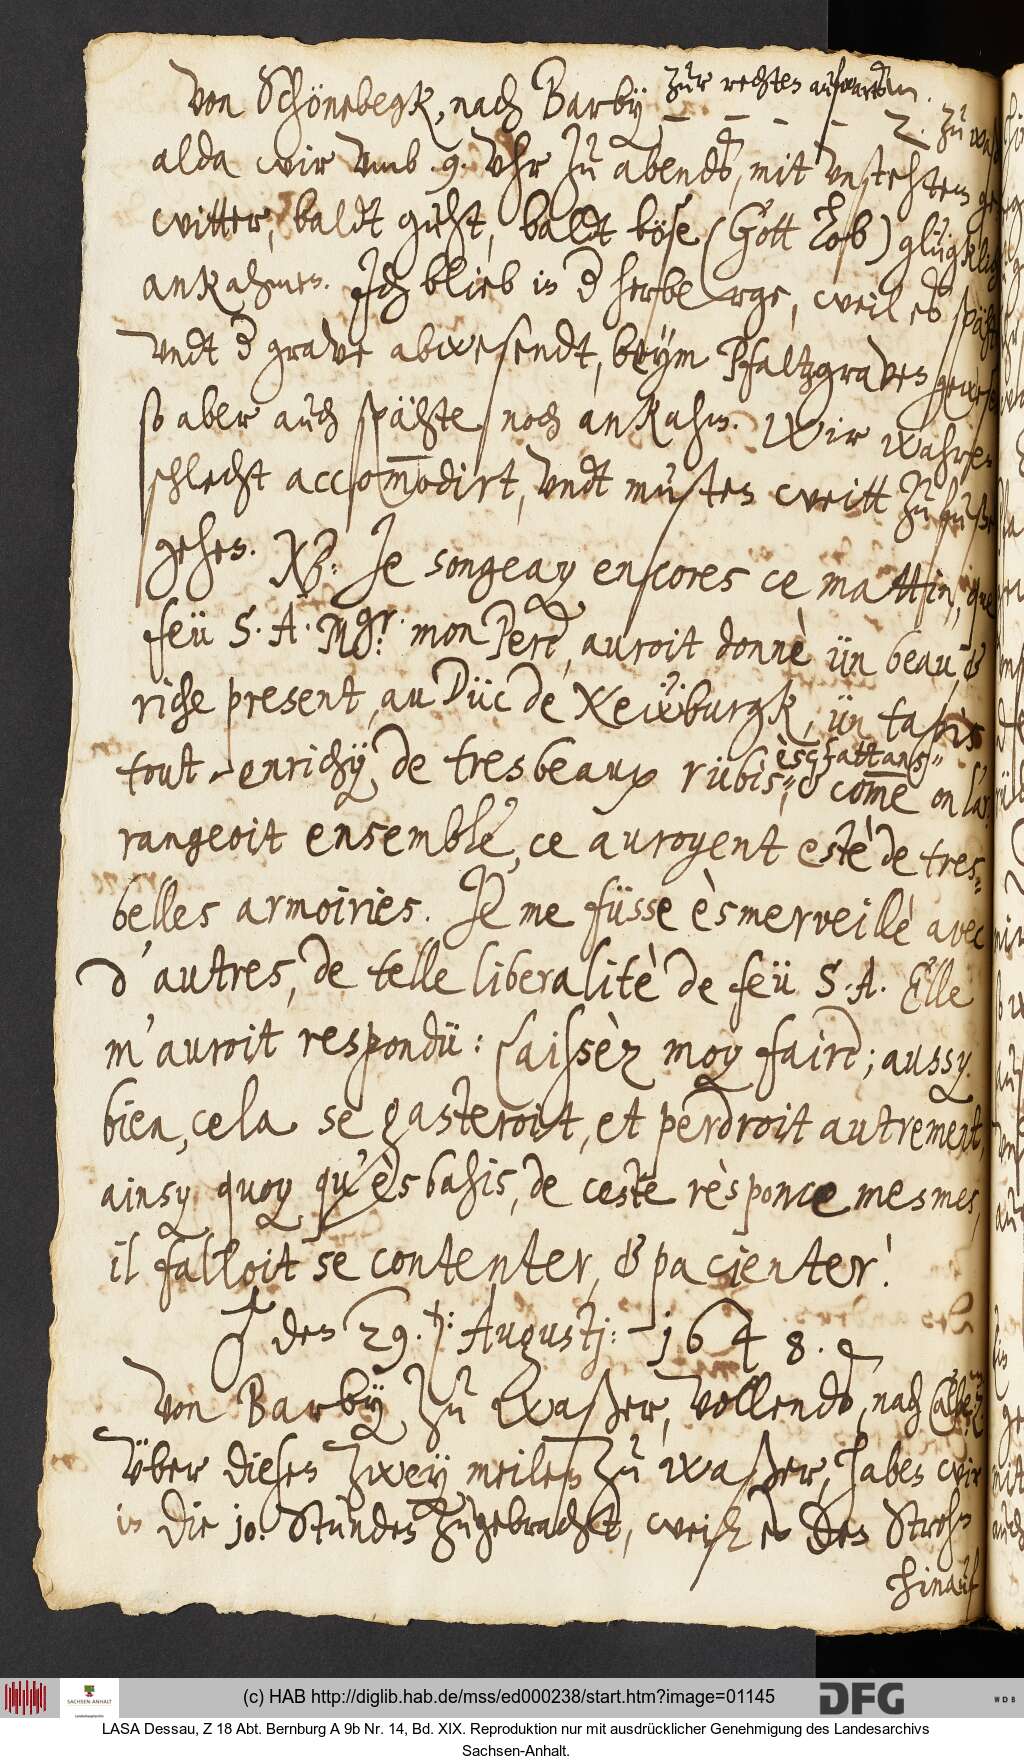 Von Schönebegk, nach Barby zur rechten aufwarts
— — — — 2. zu
alda wir vmb .9. vhr zu abends, mit vnstehtem
witter, baldt guht, baldt böse (Gott lob) glügklich
ankahmen. Ich blieb in d herberge, weil es späht
vndt d grave abwesendt, beym Pfaltzgraven
so aber auch spähte noch ankahm. Wir wahren
schlecht accommodirt, vndt musten weitt zu fuße
gehen. NB: Je songeay encores ce mattin, que
feü S. A. Mgr. mon Pere, auroit donnè ün beau, &
riche present, au Düc de Xeixburgk, ün tapis
tout enrichÿ, de tresbeaux rübis, esclattans, & come on l'ar-
rangeoit ensemble, ce auroyent estè de tres-
belles armoiries. Je me füsse èsmerveillè avec
d'autres, de telle liberalitè de feü S. A. Elle
m'auroit respondü: Laissèz moy faire; aussy
bien, cela se gasteroit, et perdroit autrement,
ainsy quoy qu'èsbahis, de ceste rèsponce mesmes,
il falloit se contenter, & pacienter!
den 29. Augustj: 1648.
Von Barby zu waßer, vollends, nach Calbe
Über diesen zwey meilen zu waßer, haben wir
in die 10. Stunden zugebracht, weil es den Strohm
hinauf
(c) HAB http://diglib.hab.de/mss/ed000238/start.htm?image=01145
SACHSEN-ANHALT
DFG
WDB
LASA Dessau, Z 18 Abt. Bernburg A 9b Nr. 14, Bd. XIX. Reproduktion nur mit ausdrücklicher Genehmigung des Landesarchivs
Sachsen-Anhalt.